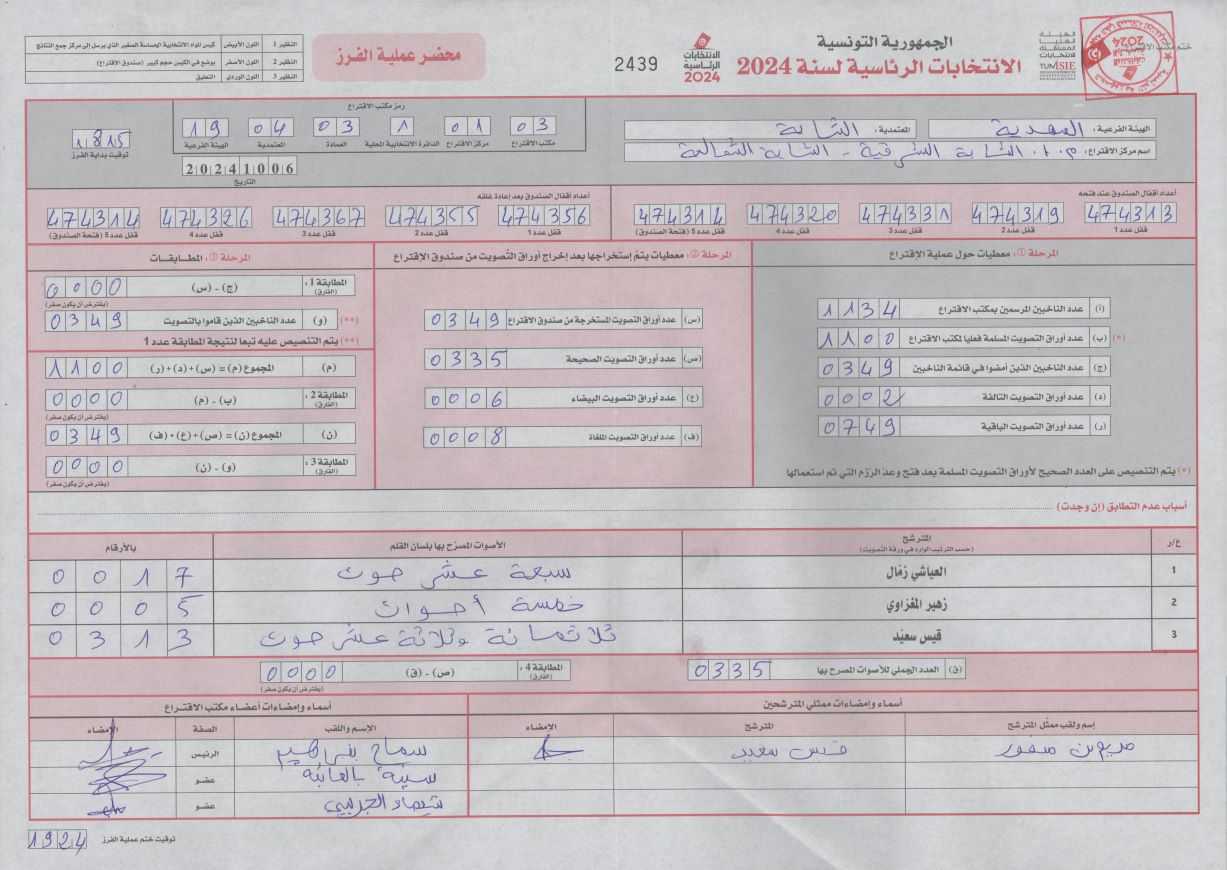 الجمهورية التونسية
الانتخابات الرئاسية لسنة 2024
الهيئة العليا المستقلة للانتخابات
TUNISIE
ختم مكتب الاقتراع
الانتخابات الرئاسية 2024
2439
محضر عملية الفرز
النظير 1 اللون الأبيض كيس المواد الانتخابية الحساسة الصغير الذي يرسل إلى مركز جمع النتائج
النظير 2 اللون الأصفر يوضع في الكيس حجم كبير (صندوق الاقتراع)
النظير 3 اللون الوردي التعليق
الهيئة الفرعية : المهدية المعتمدية : الشابة
اسم مركز الاقتراع : م.ا. الشابة الشرقية - الشابة الشمالية
رمز مكتب الاقتراع
03 01 1 03 04 19
مكتب الاقتراع مركز الاقتراع الدائرة الانتخابية المحلية العمادة المعتمدية الهيئة الفرعية
1815
توقيت بداية الفرز
20241006
التاريخ
أعداد أقفال الصندوق عند فتحه
474313 474319 474338 474320 474314
قفل عدد 1 قفل عدد 2 قفل عدد 3 قفل عدد 4 قفل عدد 5 (فتحة الصندوق)
أعداد أقفال الصندوق بعد إعادة غلقه
474356 474355 474367 474326 474314
قفل عدد 1 قفل عدد 2 قفل عدد 3 قفل عدد 4 قفل عدد 5 (فتحة الصندوق)
المرحلة ①: معطيات حول عملية الإقتراع
(أ) عدد الناخبين المرسمين بمكتب الاقتراع 1134
(ب) عدد أوراق التصويت المسلمة فعليا لمكتب الاقتراع 1100 (*)
(ج) عدد الناخبين الذين أمضوا في قائمة الناخبين 0349
(د) عدد أوراق التصويت التالفة 0002
(ر) عدد أوراق التصويت الباقية 0749
(*) يتم التنصيص على العدد الصحيح لأوراق التصويت المسلمة بعد فتح وعد الرّزم التي تم استعمالها
المرحلة ②: معطيات يتمّ إستخراجها بعد إخراج أوراق التّصويت من صندوق الإقتراع
(س) عدد أوراق التصويت المستخرجة من صندوق الاقتراع 0349
(ص) عدد أوراق التصويت الصحيحة 0335
(ع) عدد أوراق التصويت البيضاء 0006
(ف) عدد أوراق التصويت الملغاة 0008
المرحلة ③: المطابقات
المطابقة 1 : (الفارق) (ج) - (س) 0000
(يفترض أن يكون صفر)
(**) (و) عدد الناخبين الذين قاموا بالتصويت 0349
(**) يتم التنصيص عليه تبعا لنتيجة المطابقة عدد 1
(م) المجموع (م) = (س) + (د) + (ر) 1100
المطابقة 2 : (الفارق) (ب) - (م) 0000
(يفترض أن يكون صفر)
(ن) المجموع (ن) = (ص) + (ع) + (ف) 0349
المطابقة 3 : (الفارق) (و) - (ن) 0000
(يفترض أن يكون صفر)
أسباب عدم التطابق (إن وجدت)
ع/ر المترشح (حسب الترتيب الوارد في ورقة التصويت) الأصوات المصرّح بها بلسان القلم بالأرقام
1 العياشي زمّال سبعة عشر صوت 0017
2 زهير المغزاوي خمسة أصوات 0005
3 قيس سعيّد ثلاثمائة وثلاثة عشر صوت 0313
(ق) العدد الجملي للأصوات المصرح بها 0335
المطابقة 4 : (الفارق) (ص) - (ق) 0000
(يفترض أن يكون صفر)
أسماء وإمضاءات ممثلي المترشحين
إسم ولقب ممثّل المترشح المترشح الإمضاء
مريم بن منصور قيس سعيد
أسماء وإمضاءات أعضاء مكتب الاقتراع
الإسم واللقب الصفة الإمضاء
سماح بنبراهيم الرئيس
عضو
الجريبي عضو
توقيت ختم عملية الفرز 1924